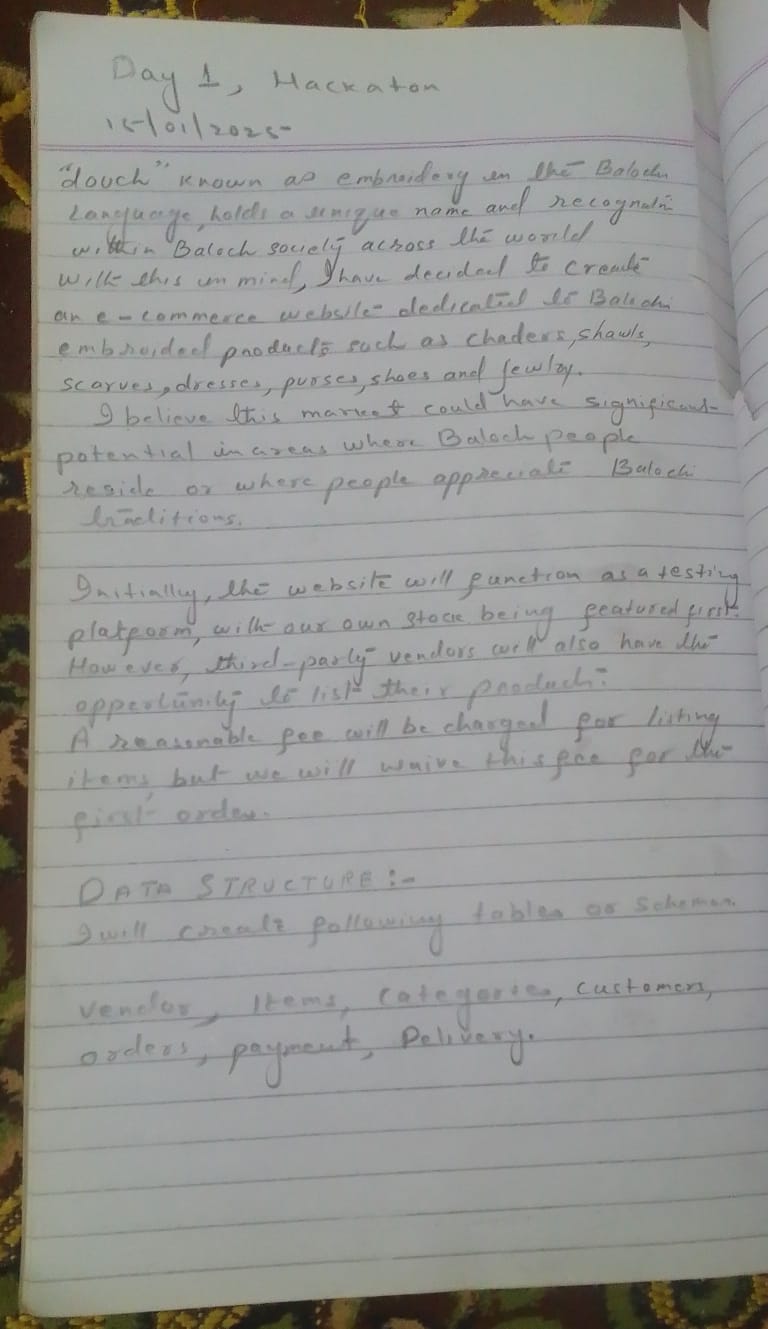 Day 1, Hackaton
15/01/2025
"douch" known as embroidery in the Balochi
Language, holds a unique name and recognati
within Baloch society across the world
With this in mind, I have decided to create
an e-commerce website dedicated to Balochi
embroided products such as chaders, shawls,
scarves, dresses, purses, shoes and Jewlry.
I believe this market could have significant
potential in areas where Baloch people
reside or where people appreciate Balochi
traditions.
Initially, the website will function as a testing
platform, with our own stock being featured first.
However, third-party vendors will also have the
opportunity to list their product.
A reasonable fee will be charged for listing
items, but we will waive this fee for the
first order.
DATA STRUCTURE :-
I will create following tables or schemas.
Vendor, Items, Categories, Customers,
orders, payment, Delivery.